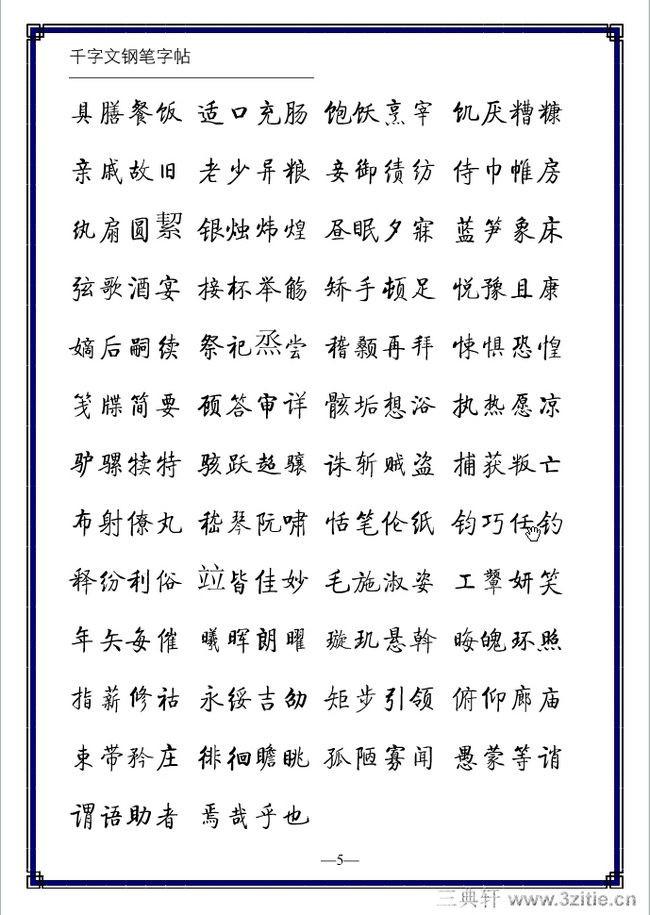 千字文钢笔字帖
具膳餐饭 适口充肠 饱饫烹宰 饥厌糟糠
亲戚故旧 老少异粮 妾御绩纺 侍巾帷房
纨扇圆絜 银烛炜煌 昼眠夕寐 蓝笋象床
弦歌酒宴 接杯举觞 矫手顿足 悦豫且康
嫡后嗣续 祭祀烝尝 稽颡再拜 悚惧恐惶
笺牒简要 顾答审详 骸垢想浴 执热愿凉
驴骡犊特 骇跃超骧 诛斩贼盗 捕获叛亡
布射僚丸 嵇琴阮啸 恬笔伦纸 钧巧任钓
释纷利俗 竝皆佳妙 毛施淑姿 工颦妍笑
年矢每催 曦晖朗曜 璇玑悬斡 晦魄环照
指薪修祜 永绥吉劭 矩步引领 俯仰廊庙
束带矜庄 徘徊瞻眺 孤陋寡闻 愚蒙等诮
谓语助者 焉哉乎也
—5—
三典轩 www.3zitie.cn